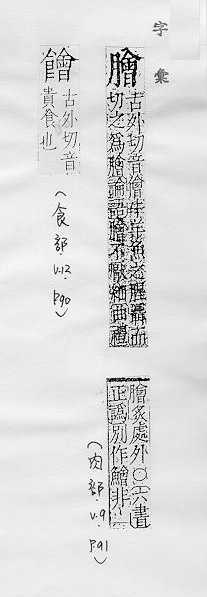 字彙
膾
古外切音儈牛羊魚之腥聶而
切之爲膾論語膾不厭細曲禮
膾炙處外○六書
正譌別作鱠非
(肉部. v.9 p.91)
䭝
古外切音
貴食也
(食部. v.12 p.90)